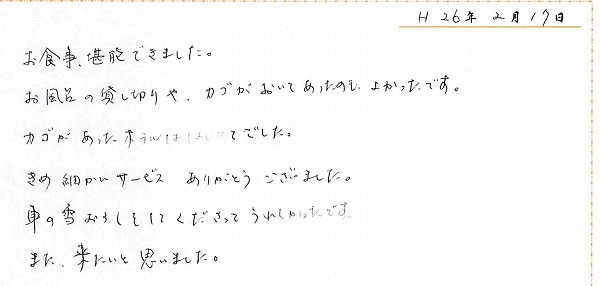 H 26年 2月17日
お食事、堪能できました。
お風呂の貸し切りや、カゴがおいてあったのも、よかったです。
カゴがあったホテルははじめてでした。
きめ細かいサービス ありがとう ございました。
車の雪おろしをしてくださって うれしかったです。
また、来たいと思いました。